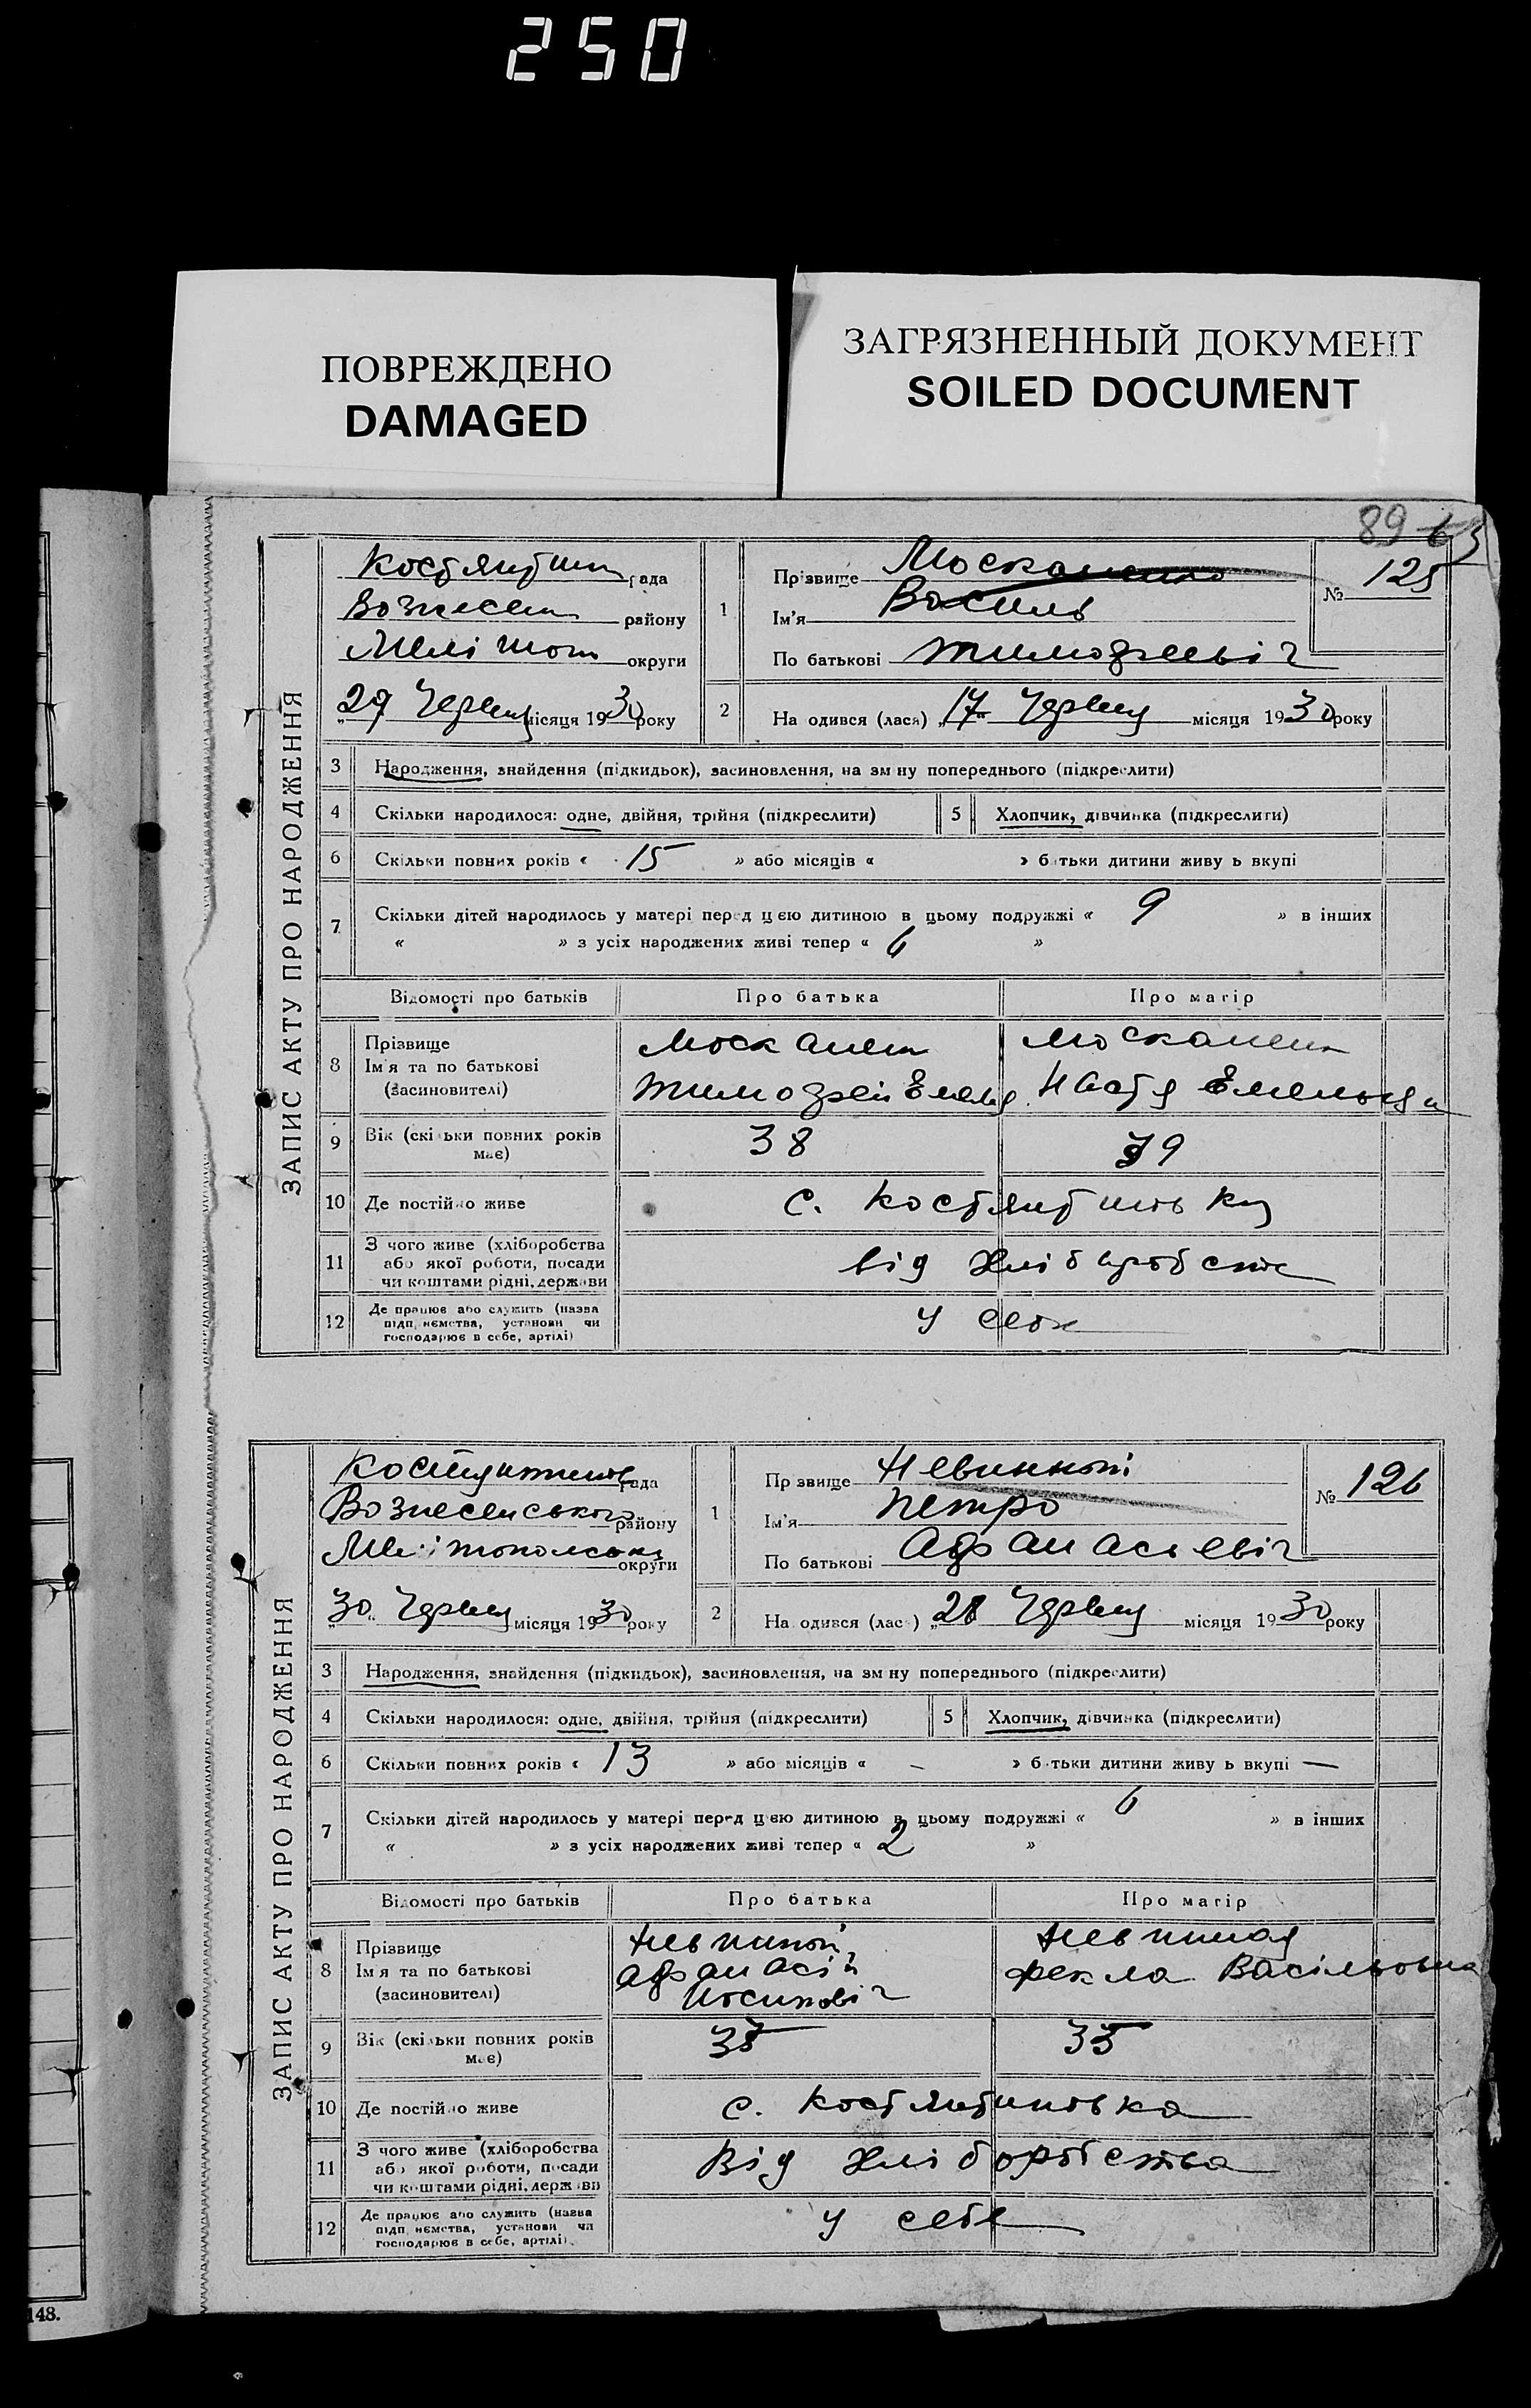 250
ПОВРЕЖДЕНО
DAMAGED
ЗАГРЯЗНЕННЫЙ ДОКУМЕНТ
SOILED DOCUMENT
89
ЗАПИС АКТУ ПРО НАРОДЖЕННЯ
рада
Вознесен району
Меліт округи
29 Червня місяця 1930 року
1
Прізвище Москаленко
Ім'я Василь
По батькові Тимофеевіч
№ 125
2
На одився (лася) „17“ Червня місяця 1930 року
3 Народження, знайдення (підкидьок), засиновлення, на зм ну попереднього (підкреслити)
4 Скільки народилося: одне, двійня, трійня (підкреслити) 5 Хлопчик, дівчинка (підкреслити)
6 Скільки повних років « 15 » або місяців « » б тьки дитини живу ь вкупі
7 Скільки дітей народилось у матері перед цею дитиною в цьому подружжі « 9 » в інших
« » з усіх народжених живі тепер « 6 »
Відомості про батьків Про батька Про матір
8 Прізвище
Ім'я та по батькові
(засиновителі)
Тимофей
Настя
9 Вік (скі ьки повних років має) 38 39
10 Де постійно живе с.
11 З чого живе (хліборобства
або якої роботи, посади
чи коштами рідні, держави
від
12 Де працює або служить (назва
підп. ємства, установи чи
господарює в себе, артілі)
у себе
ЗАПИС АКТУ ПРО НАРОДЖЕННЯ
рада
Вознесенського району
Мелітопольськ округи
30 Червня місяця 1930 року
1
Пр звище Невинной
Ім'я Петро
По батькові Афанасьевіч
№ 126
2
На одився (лас ) „28 Червня місяця 1930 року
3 Народження, знайдення (підкидьок), засиновлення, на зм ну попереднього (підкреслити)
4 Скільки народилося: одне, двійня, трійня (підкреслити) 5 Хлопчик, дівчинка (підкреслити)
6 Скільки повних років « 13 » або місяців « — » б тьки дитини живу ь вкупі —
7 Скільки дітей народилось у матері перед цею дитиною в цьому подружжі « 6 » в інших
« » з усіх народжених живі тепер « 2 »
Відомості про батьків Про батька Про матір
8 Прізвище
Ім'я та по батькові
(засиновителі)
Невиной Невиная
Афанасій Фекла Васільовна
9 Вік (скільки повних років має) 35
10 Де постійно живе с. Костянтиновка
11 З чого живе (хліборобства
або якої роботи, посади
чи коштами рідні, держави
Від хліборобства
12 Де працює або служить (назва
підп. ємства, установи чи
господарює в себе, артілі)
у себе
148.